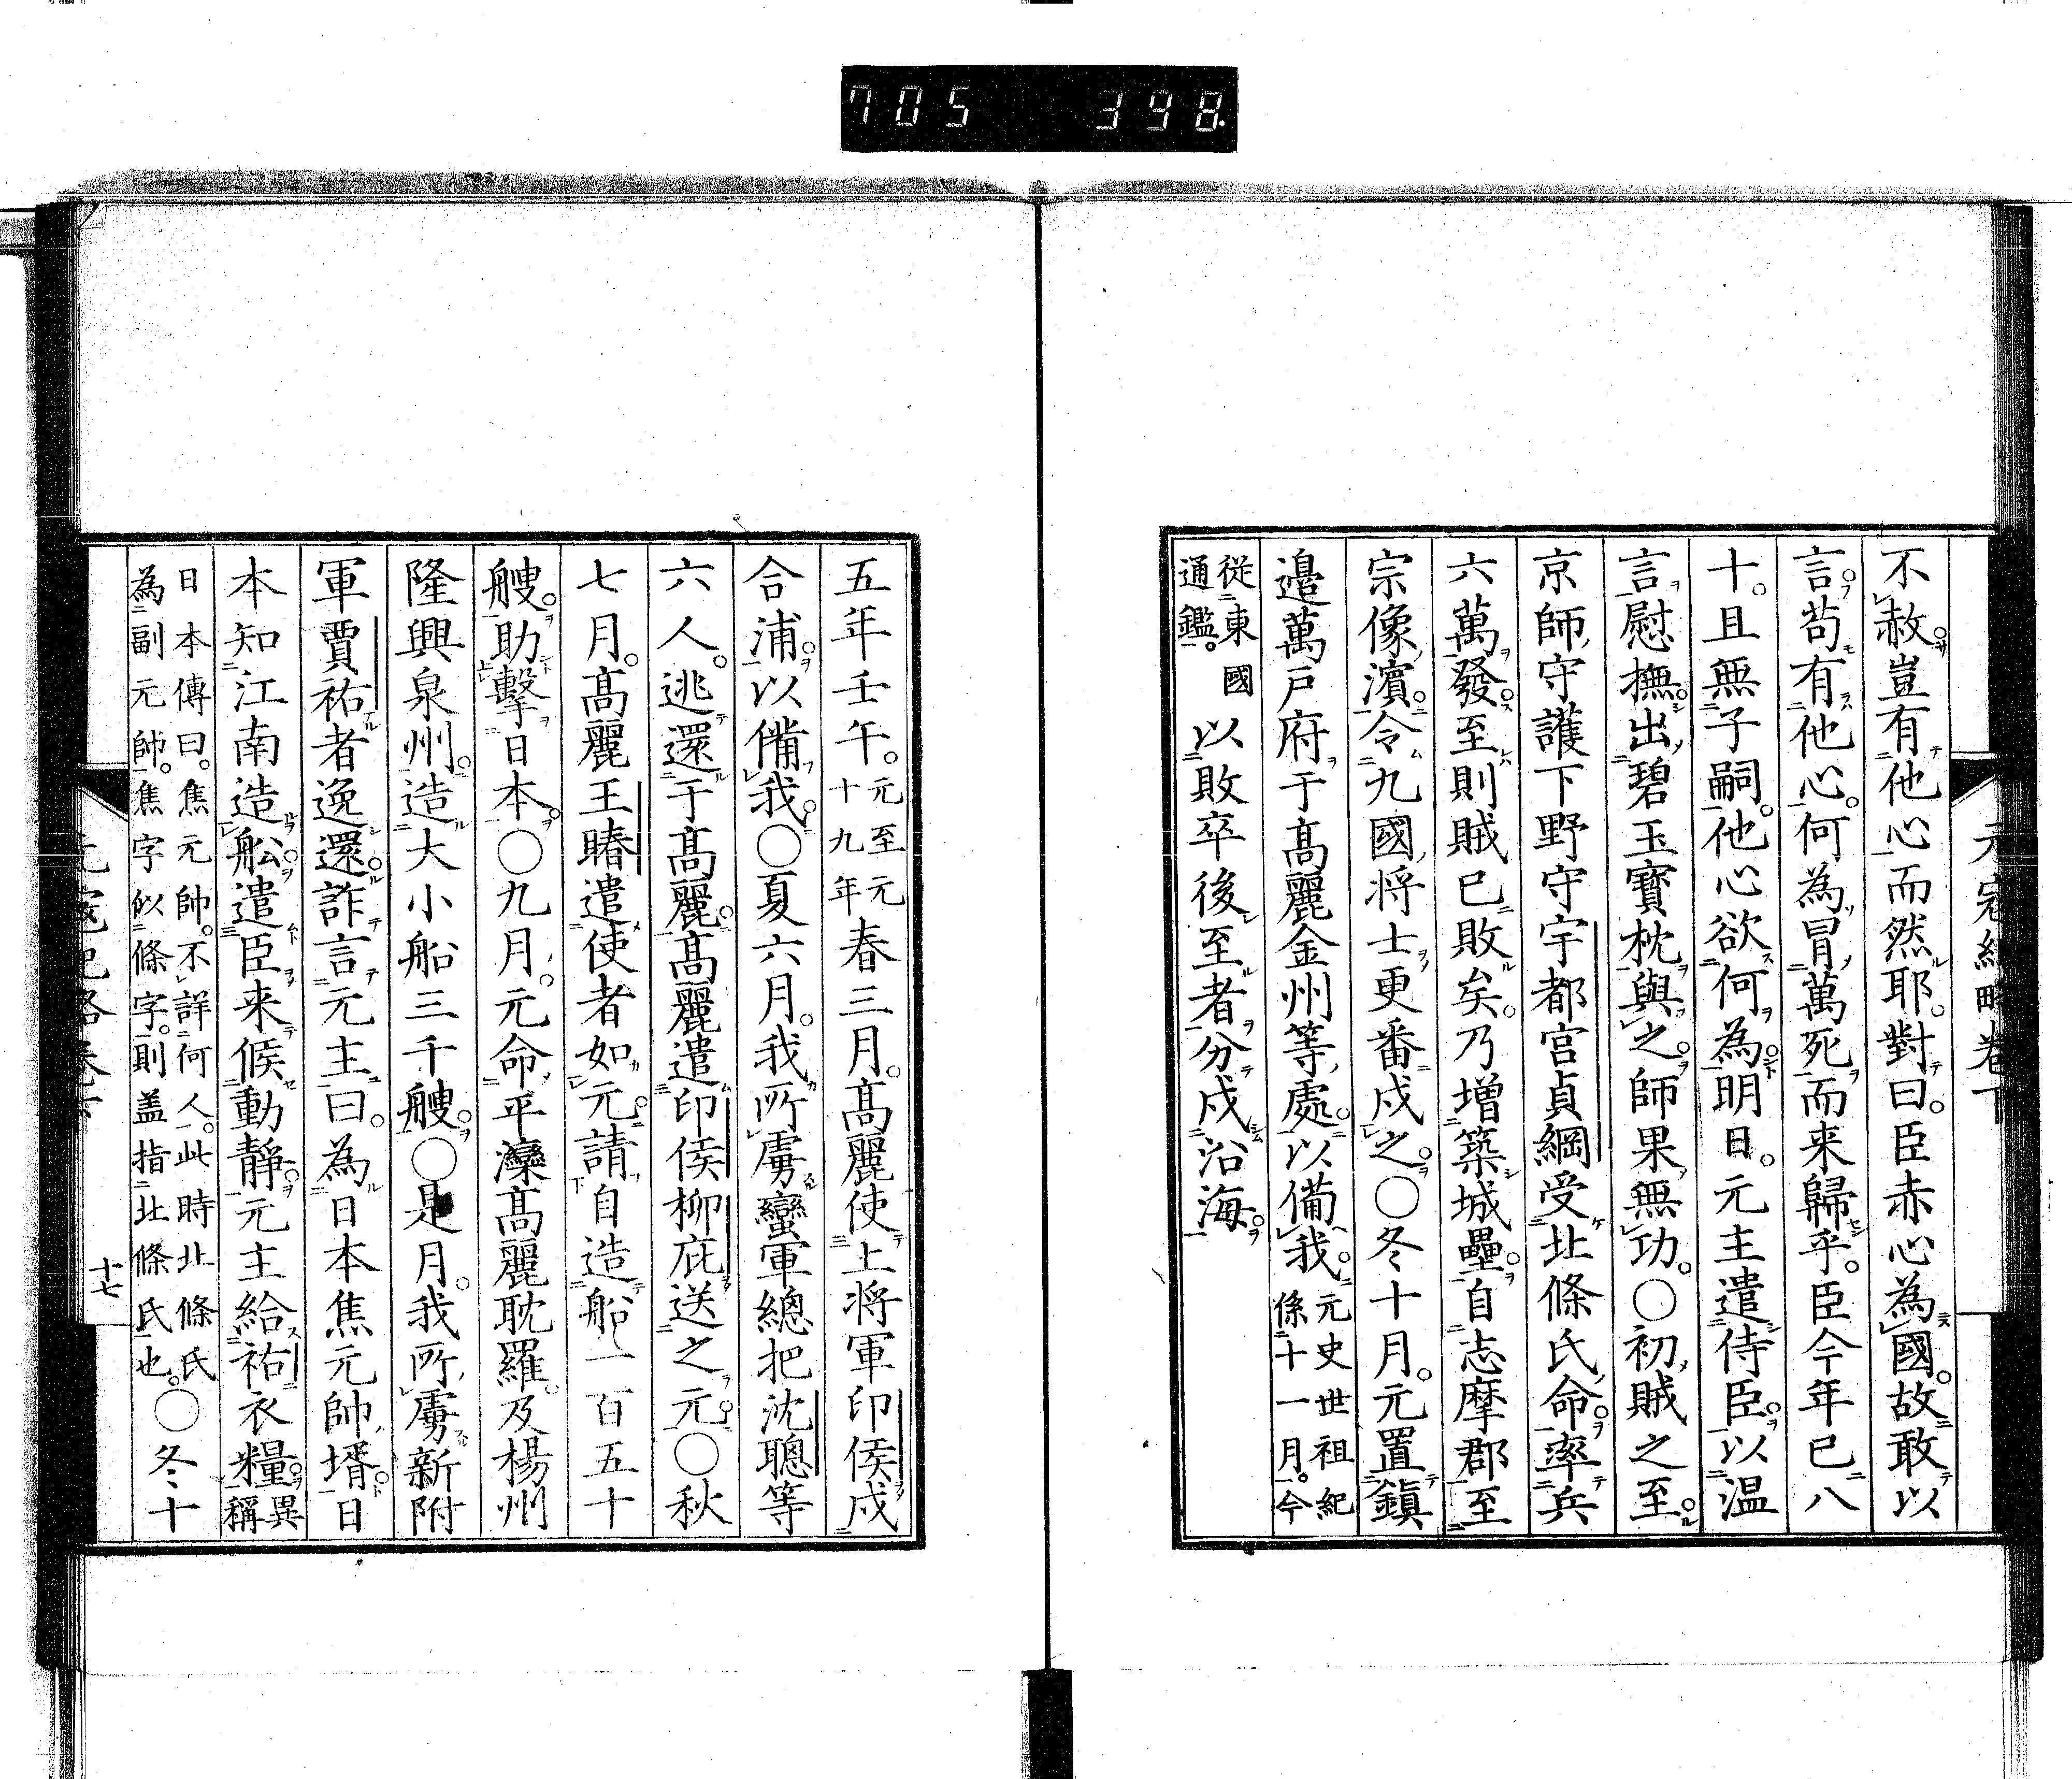 705 398.
元寇紀略卷下
不赦。豈有他心而然耶。對曰。臣赤心為國。故敢以
言。苟有他心。何為冒萬死而来歸乎。臣今年已八
十。且無子嗣。他心欲何為。明日。元主遣侍臣。以温
言慰撫。出碧玉寶枕與之。師果無功。〇初賊之至。
京師守護下野守宇都宮貞綱受北條氏命。率兵
六萬發。至則賊已敗矣。乃增築城壘。自志摩郡至
宗像濱。令九國将士更番戍之。〇冬十月。元置鎭
邉萬戸府于高麗金州等處。以備我。元史世祖紀係十一月。今
從東國通鑑。以敗卒後至者。分戍沿海。
五年壬午。元至元十九年春三月。高麗使上将軍印侯戍
合浦。以備我。〇夏六月。我所虜蠻軍總把沈聰等
六人。逃還于高麗。高麗遣印侯柳庇送之元。〇秋
七月。高麗王賰遣使者如元。請自造船一百五十
艘。助擊日本。〇九月。元命平灤高麗耽羅及楊州
隆興泉州。造大小船三千艘。〇是月。我所虜新附
軍賈祐者逸還。詐言元主曰。為日本焦元帥壻。日
本知江南造舩。遣臣来候動靜。元主給祐衣糧。異稱
日本傳曰。焦元帥。不詳何人。此時北條氏為副元帥。焦字似條字。則盖指北條氏也。〇冬十
十七